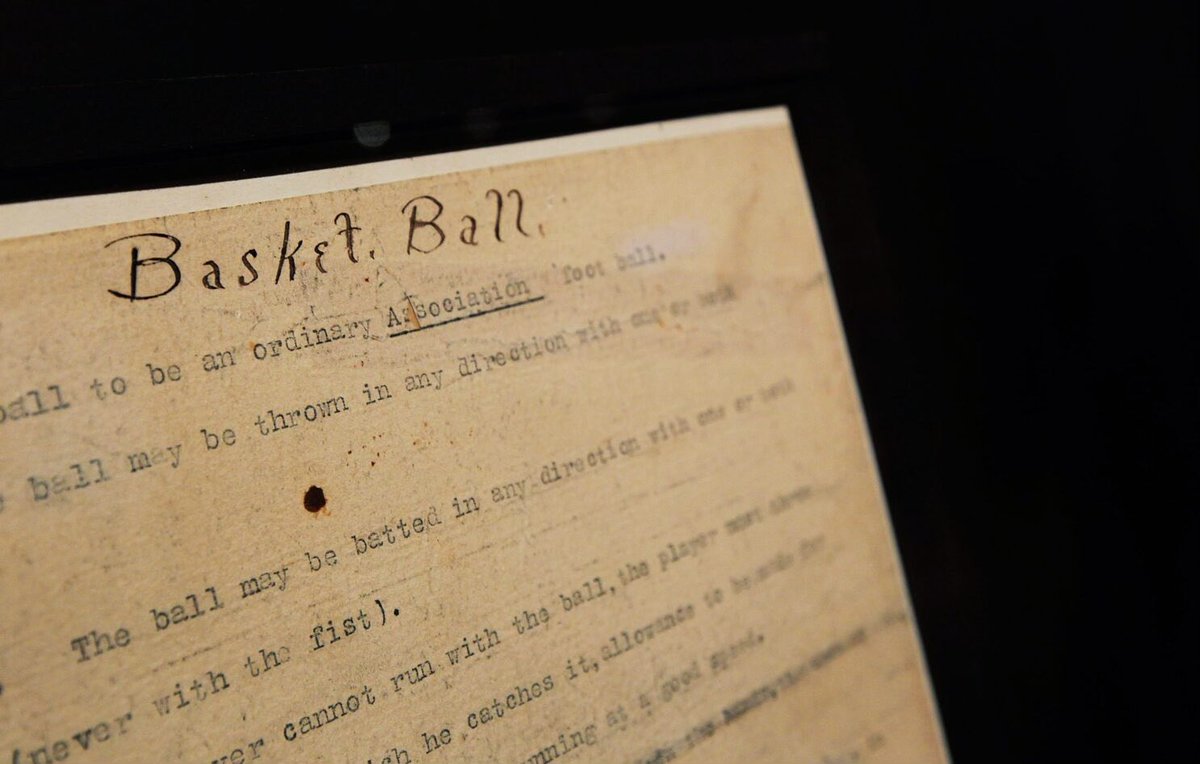 Basket. Ball.
ball to be an ordinary Association foot ball.
ball may be thrown in any direction with one or both
The ball may be batted in any direction with one or both
(never with the fist).
cannot run with the ball, the player must
he catches it, allowance to be made for
at a good speed.